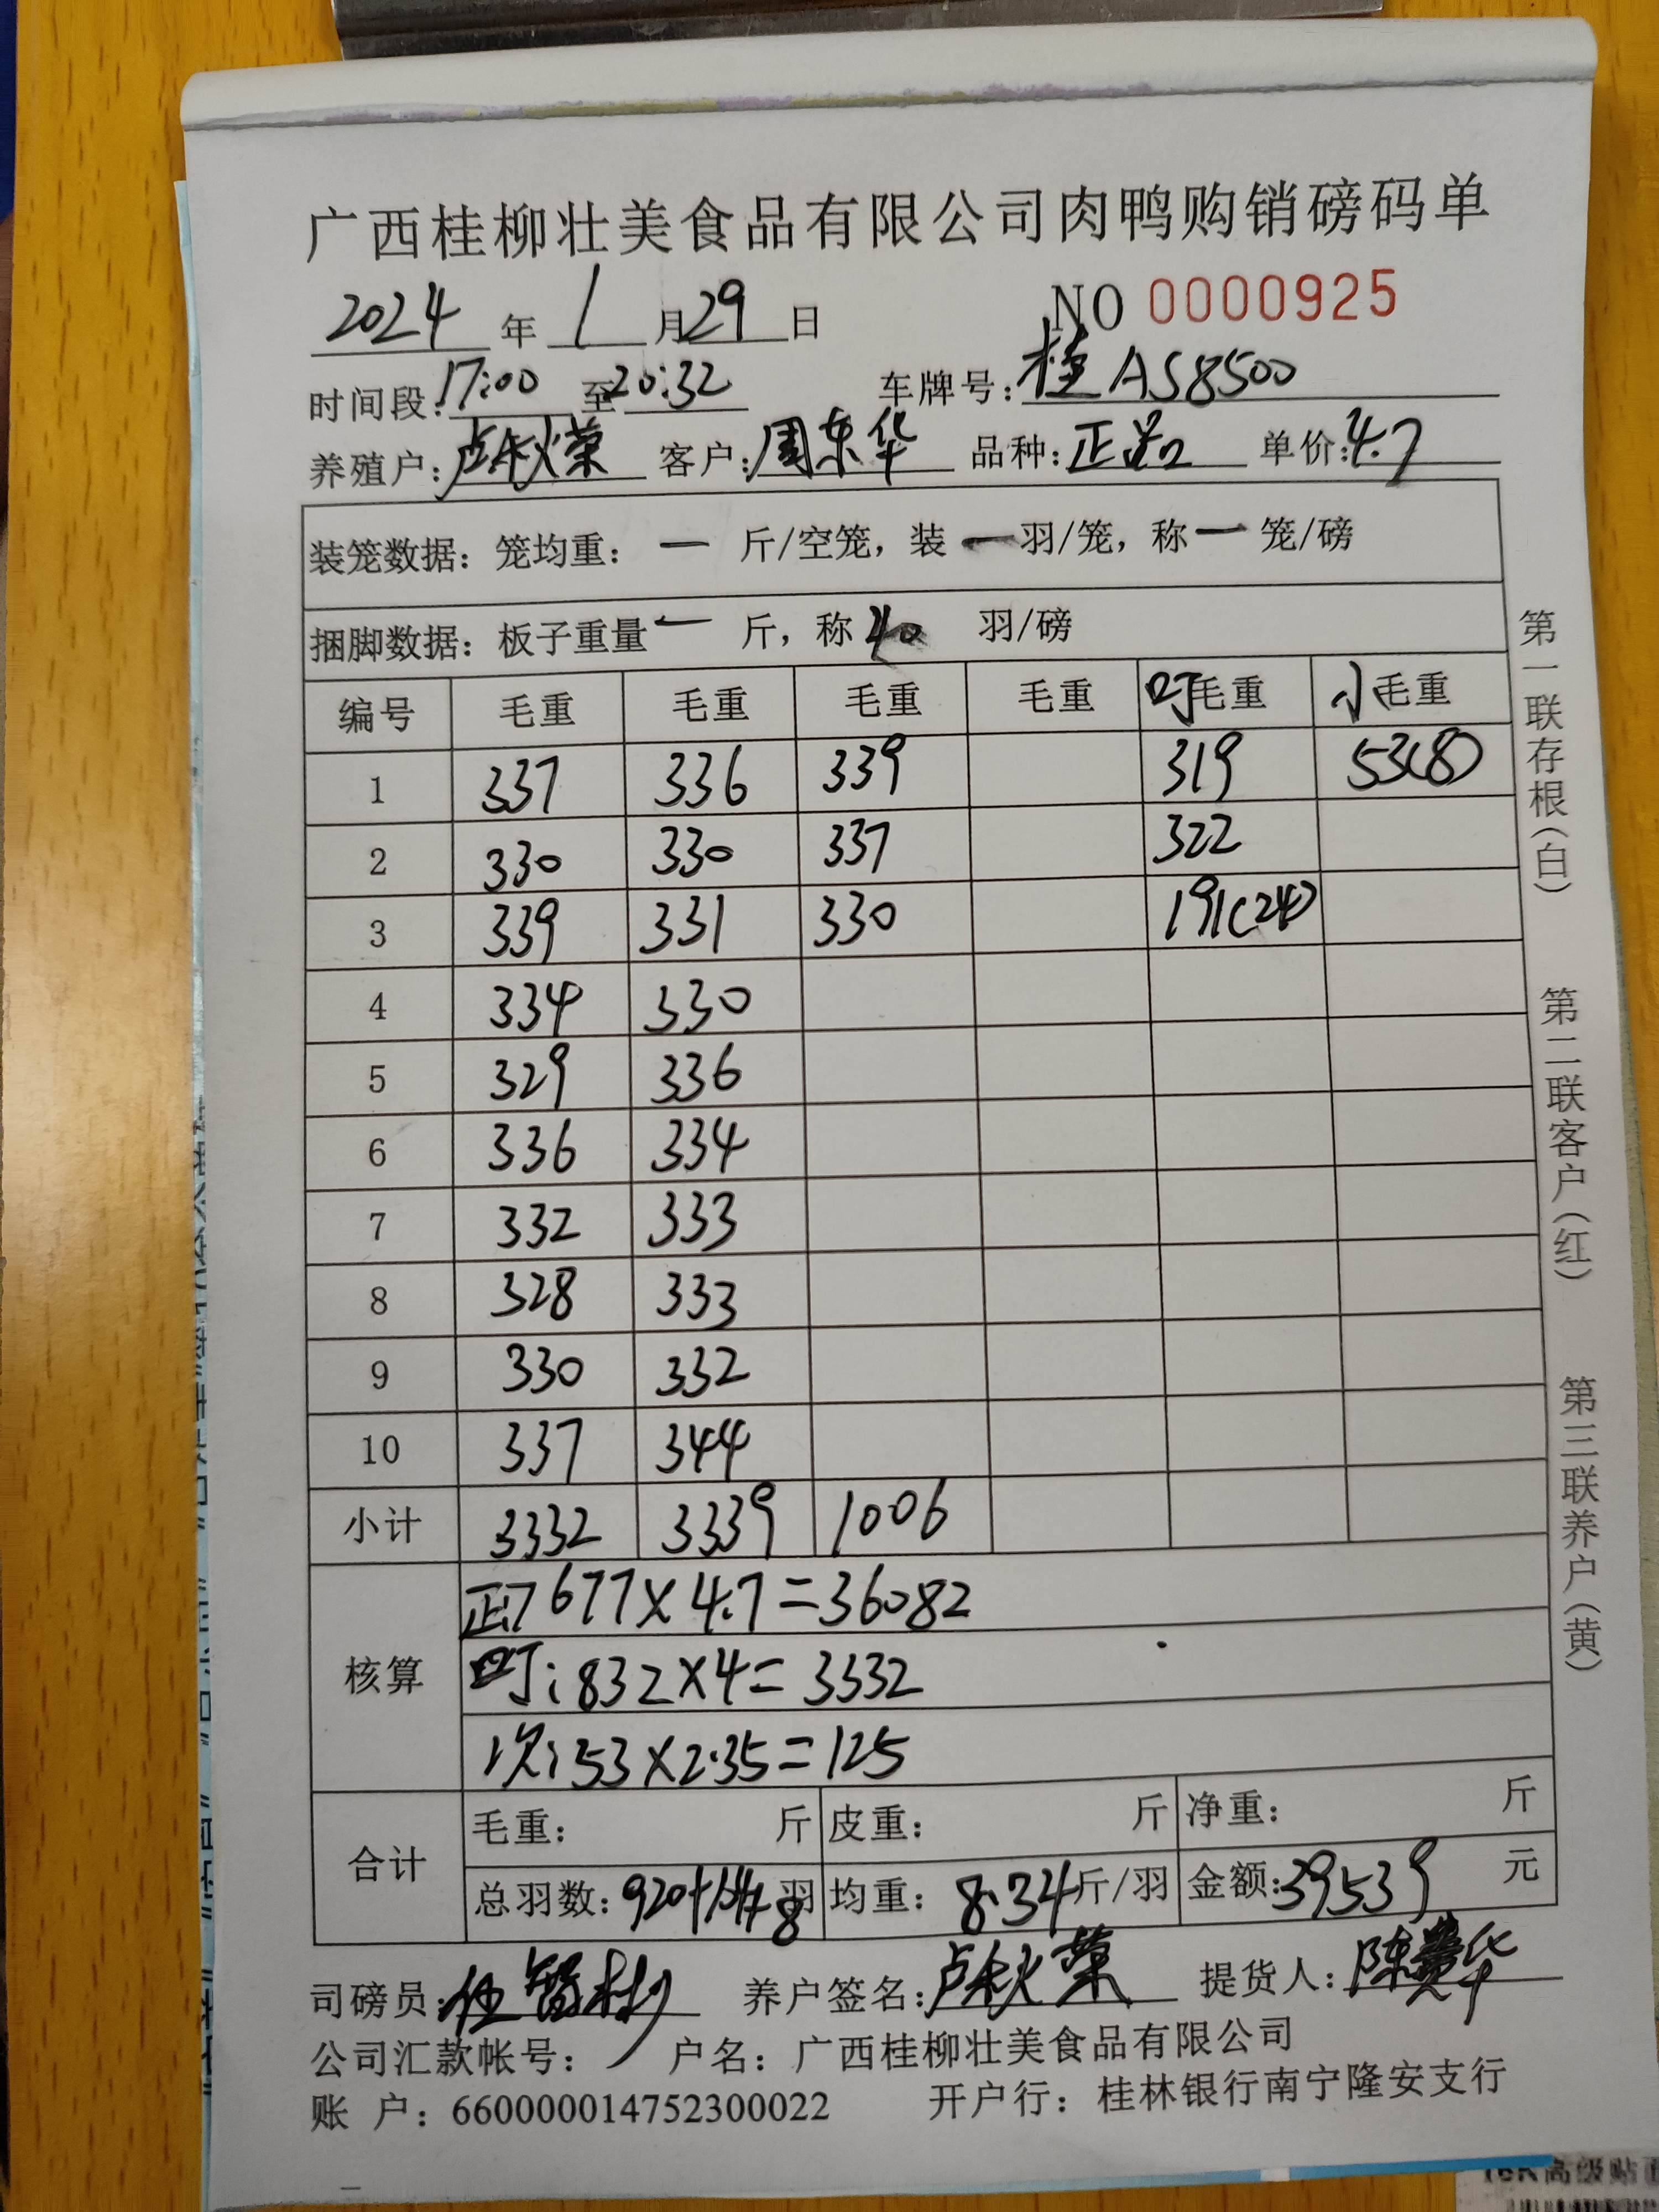 广西桂柳壮美食品有限公司肉鸭购销磅码单
2024 年 1 月 29 日 NO 0000925
时间段:17:00 至 20:32 车牌号:桂AS8500
养殖户:卢秋荣 客户:周东华 品种:正品 单价:4.7
装笼数据: 笼均重: 一 斤/空笼, 装 一 羽/笼, 称 一 笼/磅
捆脚数据: 板子重量 一 斤, 称 40 羽/磅
编号 毛重 毛重 毛重 毛重 叮毛重 小毛重
1 337 336 339 319 53(8)
2 330 330 337 322
3 339 331 330 191(24)
4 334 330
5 329 336
6 336 334
7 332 333
8 328 333
9 330 332
10 337 344
小计 3332 3339 1006
核算
正:7677×4.7=36082
叮:832×4=3332
次:53×2.35=125
合计
毛重: 斤 皮重: 斤 净重: 斤
总羽数:920+ 羽 均重: 8.34 斤/羽 金额:39539 元
司磅员: 养户签名:卢秋荣 提货人:
公司汇款帐号: 户名: 广西桂柳壮美食品有限公司
账 户: 660000014752300022 开户行: 桂林银行南宁隆安支行
第一联存根(白)
第二联客户(红)
第三联养户(黄)
16K高级贴